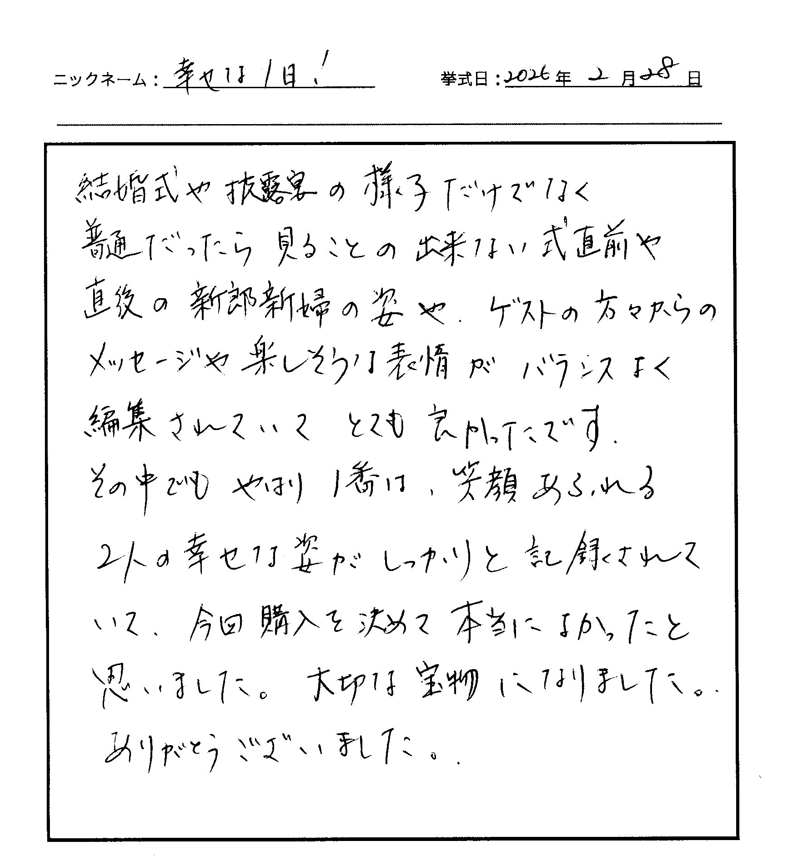 ニックネーム：幸せな1日！ 挙式日：2026年 2月28日
結婚式や披露宴の様子だけでなく
普通だったら見ることの出来ない式直前や
直後の新郎新婦の姿や、ゲストの方々からの
メッセージや楽しそうな表情がバランスよく
編集されていてとても良かったです。
その中でもやはり1番は、笑顔あふれる
2人の幸せな姿がしっかりと記録されて
いて、今回購入を決めて本当によかったと
思いました。大切な宝物になりました。
ありがとうございました。